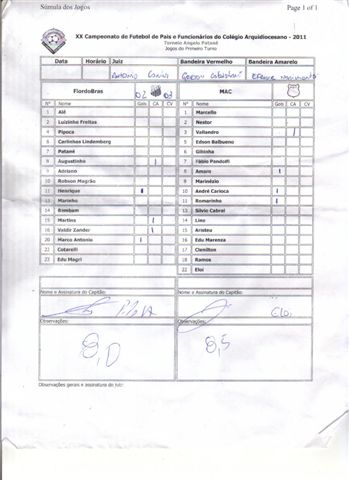 Súmula dos Jogos Page 1 of 1
XX Campeonato de Futebol de Pais e Funcionários do Colégio Arquidiocesano - 2011
Torneio Angelo Patané
Jogos do Primeiro Turno
Data Horário Juiz Bandeira Vermelho Bandeira Amarelo
Antonio
FiordoBras 02 03 MAC
Nº Nome Gols CA CV Nº Nome Gols CA CV
1 Alê 1 Marcello
2 Luizinho Freitas 2 Nestor
4 Pipoca 3 Vallandro
6 Carlinhos Lindemberg 5 Edson Balbueno
7 Patané 6 Gibinha
8 Augustinho 7 Fábio Pandolfi
9 Adriano 8 Amaro
10 Robson Magrão 9 Marinézio
11 Henrique 10 André Carioca
13 Marinho 11 Romarinho
14 Bombam 13 Silvio Cabral
15 Martins 14 Lino
18 Valdir Zander 15 Aristeu
20 Marco Antonio 16 Edu Marenza
22 Cotarelli 17 Clenilton
23 Edu Magri 18 Ramos
22 Eloi
Nome e Assinatura do Capitão: Nome e Assinatura do Capitão:
Eloi
Observações: Observações:
8,0 8,5
Observações gerais e assinatura do juiz: